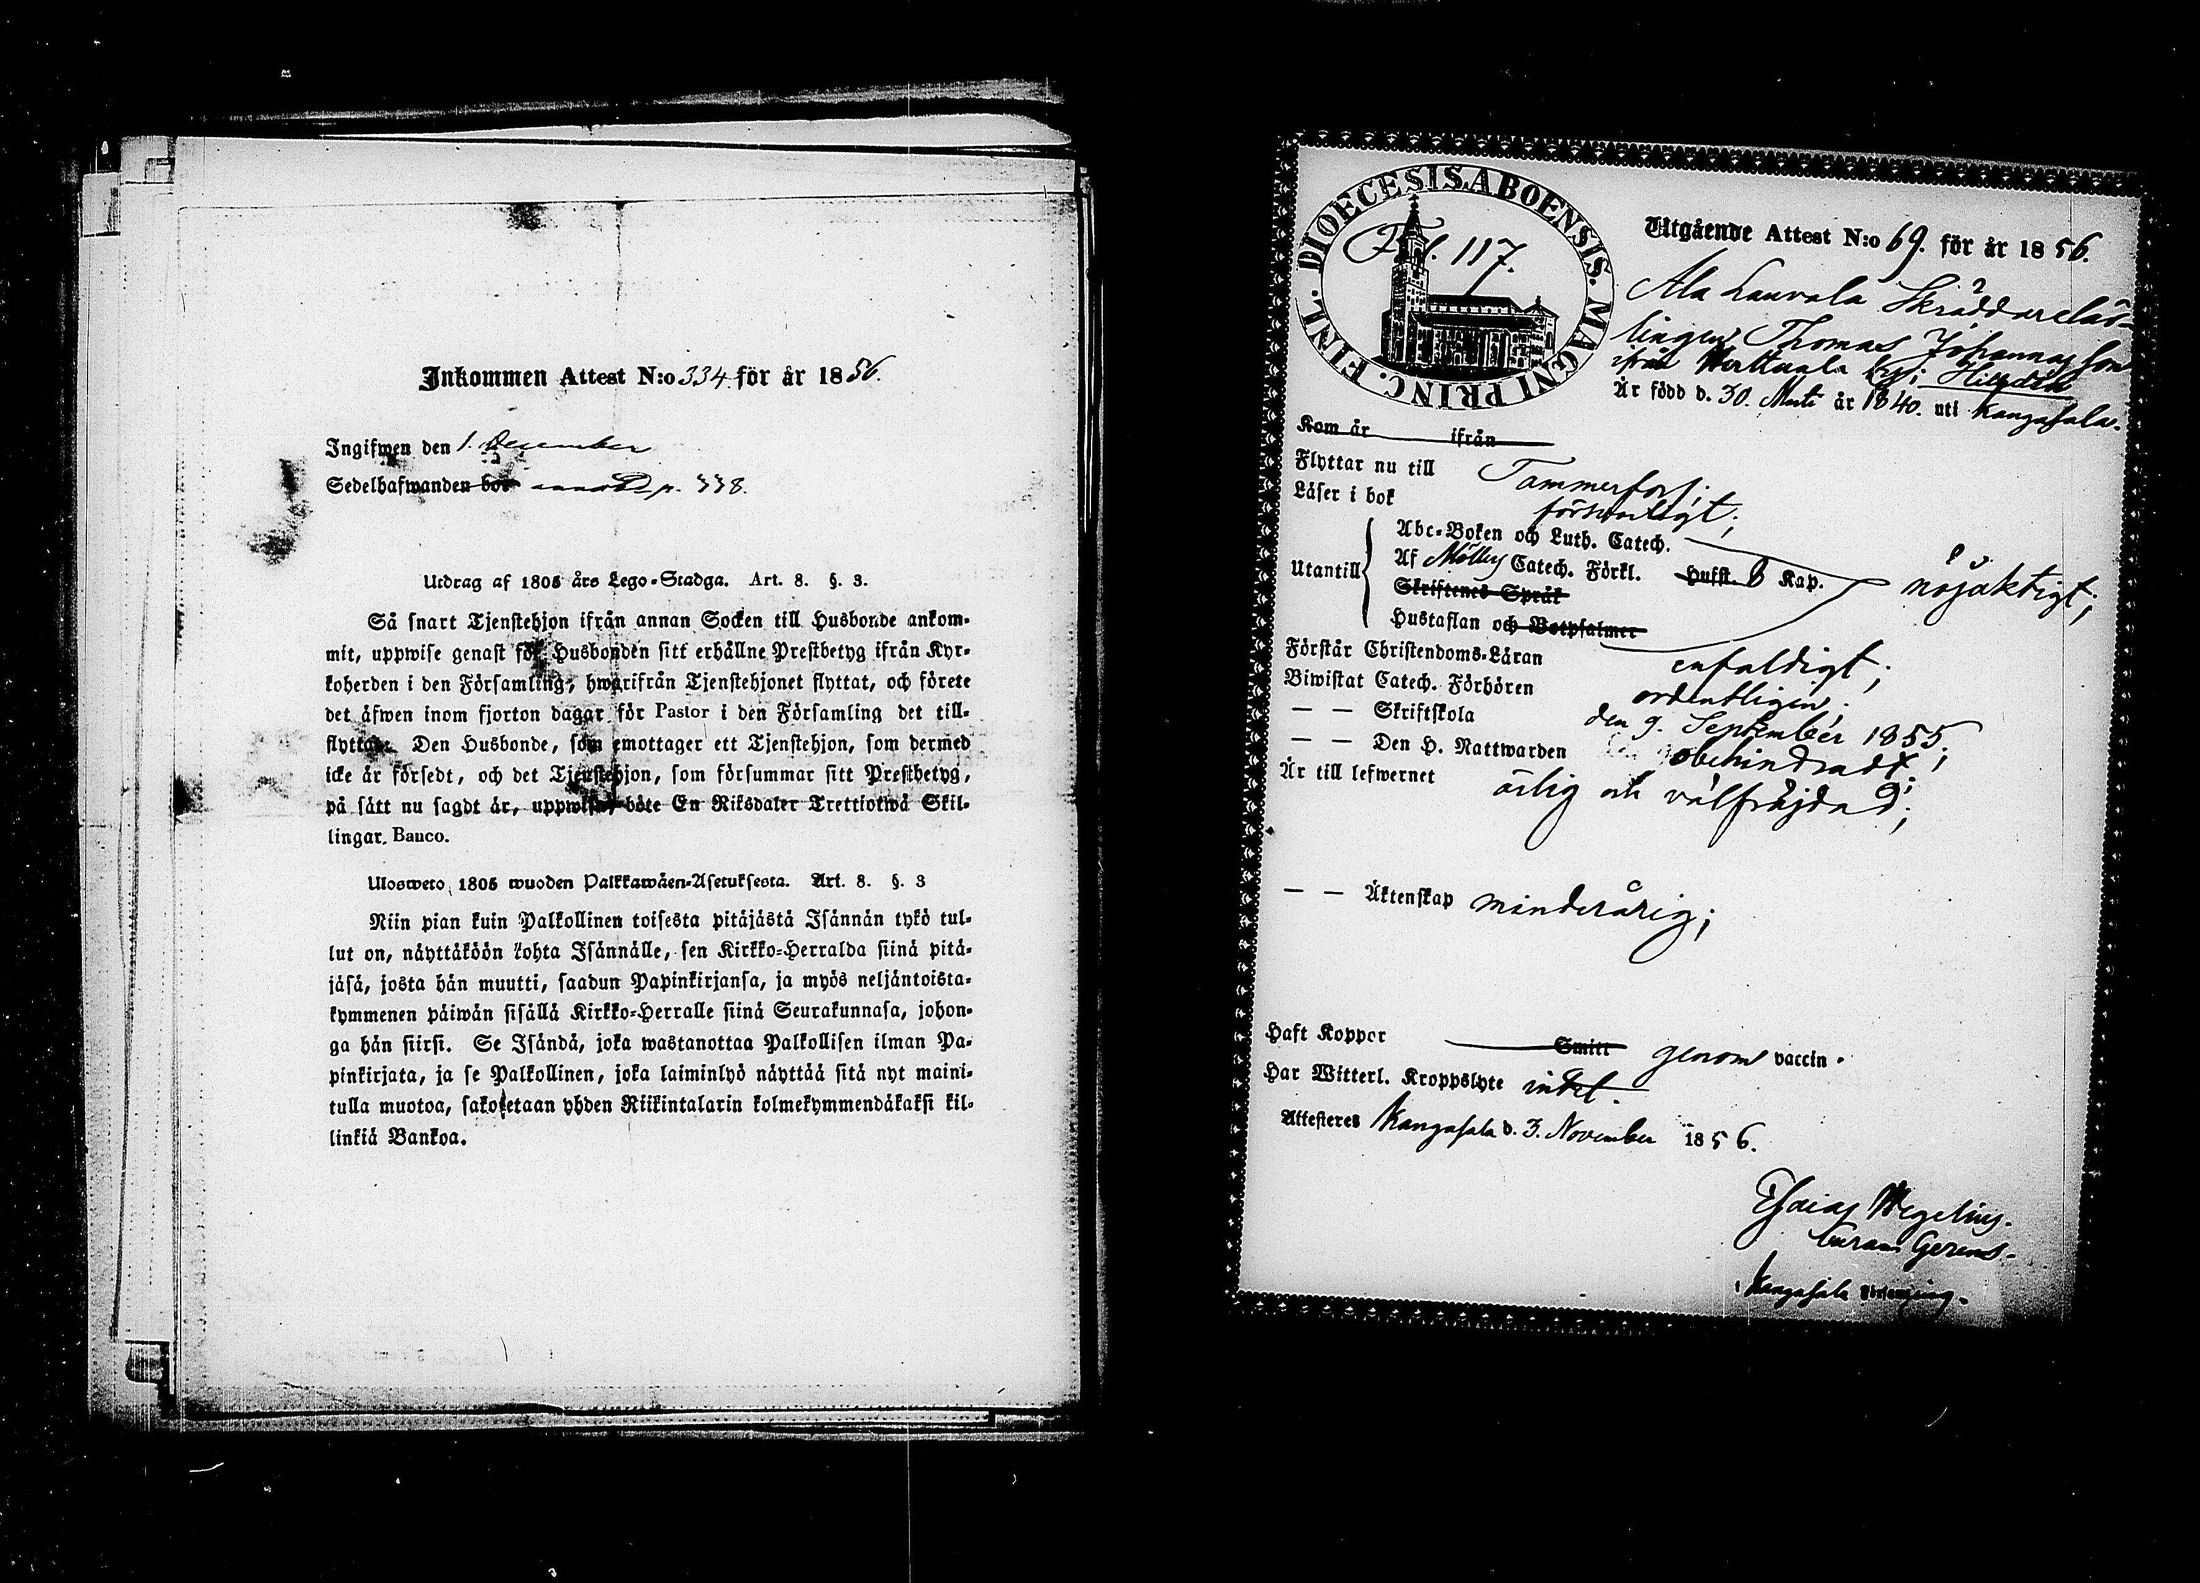 Inkommen Attest N:o 334. för år 1856.
Ingifwen den 1. December
Sedelhafwanden bor p. 338.
Utdrag af 1805 års Lego-Stadga. Art. 8. §. 3.
Så snart Tjenstehjon ifrån annan Socken till Husbonde ankom-
mit, uppwise genast för Husbonden sitt erhållne Prestbetyg ifrån Kyr-
koherden i den Församling, hwarifrån Tjenstehjonet flyttat, och förete
det äfwen inom fjorton dagar för Pastor i den Församling det till-
flyttat. Den Husbonde, som emottager ett Tjenstehjon, som dermed
icke är försedt, och det Tjenstehjon, som försummar sitt Prestbetyg,
på sätt nu sagdt är, uppwisa, böte En Riksdaler Trettiotwå Skil-
lingar. Banco.
Ulosweto 1805 wuoden Palkkawäen-Asetuksesta. Art. 8. §. 3
Niin pian kuin Palkollinen toisesta pitäjästä Isännän tykö tul-
lut on, näyttäköön kohta Isännälle, sen Kirkko-Herralda siinä pitä-
jäsä, josta hän muutti, saadun Papinkirjansa, ja myös neljäntoista-
kymmenen päiwän sisällä Kirkko-Herralle siinä Seurakunnasa, johon-
ga hän siirsi. Se Isändä, joka wastanottaa Palkollisen ilman Pa-
pinkirjata, ja se Palkollinen, joka laiminlyö näyttää sitä nyt maini-
tulla muotoa, sakotetaan yhden Riikintalarin kolmekymmendäkaksi kil-
linkiä Bankoa.
DIOECESIS ABOENSIS. MAGNI PRINC. FINL.
Fol. 117.
Utgående Attest N:o 69. för år 1856.
Ala Laurala Skräddarelär-
lingen Thomas Johannasson
ifrån Werttuala by;
Är född d. 30. Marti år 1840. uti Kangasala.
Kom år ifrån
Flyttar nu till Tammerfors;
Läser i bok försvarligt;
Utantill
Abc-Boken och Luth. Catech.
Af Möllers Catech. Förkl. Hufst. 6 Kap. nöjaktigt;
Skriftenes Språk
Hustaflan och Botpsalmer
Förstår Christendoms-Läran enfaldigt;
Biwistat Catech. Förhören ordentligen;
— — Skriftskola den 9. September 1855;
— — Den H. Nattwarden obehindradt;
Är till lefwernet ärlig och välfräjdad;
— — Äktenskap minderårig;
Haft Koppor Smitt genom vaccin.
Har Witterl. Kroppslyte intet.
Attesteres Kangasala d. 3. November 1856.
Esaias Wegelius.
Curam Gerens.
i Kangasala Församling.